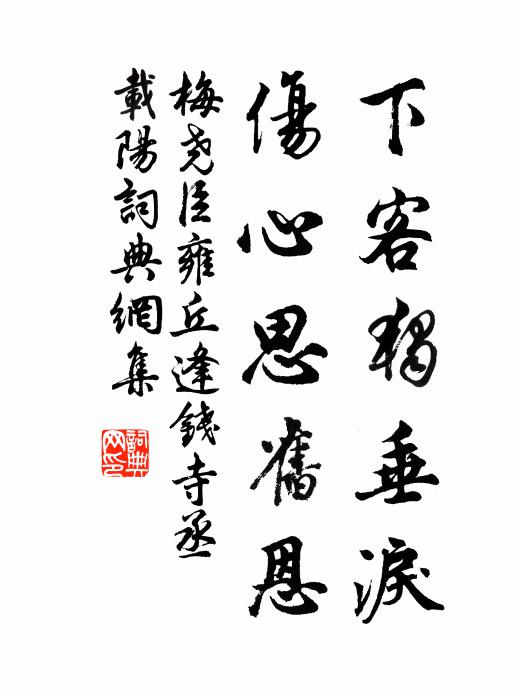 下客獨垂淚
傷心思舊恩
梅堯臣雍丘逢錢寺丞
載陽詞典網集
詞典網印